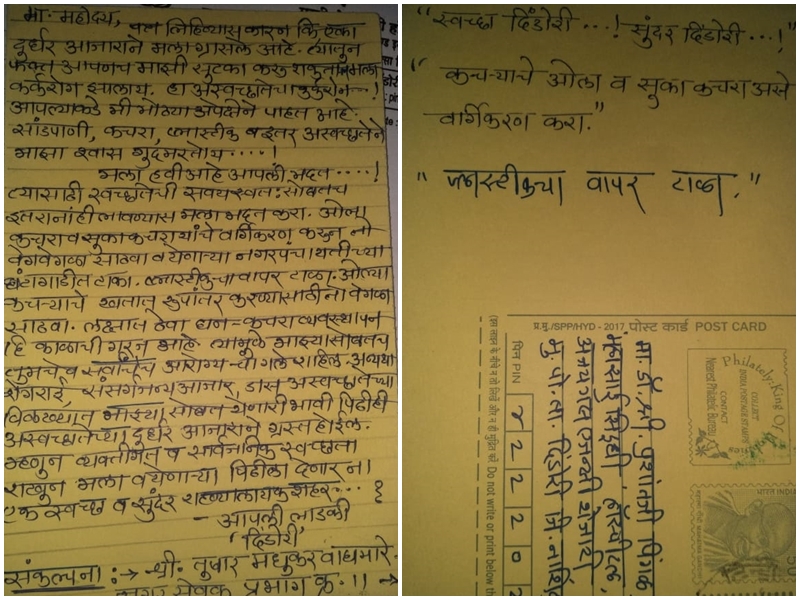 मा. महोदय,
पत्र लिहिण्यास कारण कि, एका
दुर्धर आजाराने मला ग्रासले आहे. त्यातुन
फक्त आपणच माझी सुटका करू शकता मला
कर्करोग झालाय. हा अस्वच्छतेचा कर्करोग...!
आपल्याकडे मी मोठ्या अपेक्षेने पाहत आहे.
सांडपाणी, कचरा, प्लास्टीक व इतर अस्वच्छतेने
माझा श्वास गुदमरतोय....!
मला हवी आहे आपली मदत....!
त्यासाठी स्वच्छतेची सवय स्वतः सोबतच
इतरांनांही लावण्यास मला मदत करा. ओला
कचरा व सुका कचरा यांचे वर्गिकरण करून तो
वेगवेगळा साठवा व येणाऱ्या नगरपंचायतीच्या
घंटागाडीत टाका. प्लास्टीकचा वापर टाळा. ओल्या
कचऱ्याचे खतात रूपांतर करण्यासाठी तो वेगळा
साठवा. लक्षात ठेवा घन-कचरा व्यवस्थापन
हि काळाची गरज आहे त्यामुळे माझ्या सोबतच
तुमचे व सर्वांचेच आरोग्य चांगले राहिल. अन्यथा
रोगराई, संसर्गजन्य आजार, डास अस्वच्छतेच्या
विळख्यात माझ्या सोबत येणारी भावी पिढीही
अस्वच्छतेच्या दुर्धर आजाराने ग्रस्त होईल.
म्हणुन व्यक्तीगत व सार्वजनिक स्वच्छता
राखुन मला व येणाऱ्या पिढीला देणार ना
एक स्वच्छ व सुंदर राहण्यालायक शहर...?
- आपली लाडकी
'दिंडोरी'
संकल्पना :→ श्री. तुषार मधुकर वाघमारे.
नगर सेवक प्रभाग क्र. 11 →
"स्वच्छ दिंडोरी...! सुंदर दिंडोरी...!"
"कचऱ्याचे ओला व सुका कचरा असे
वर्गिकरण करा."
"प्लास्टीकचा वापर टाळा."
प्र.मु./SPP/HYD - 2017 पोस्ट कार्ड POST CARD
Philately-King Of
COLLECT
INDIA POSTAGE STAMPS
CONTACT
Nearest Philatelic Bureau
मा. डॉ. श्री. प्रशांतजी पिंगळे
भोसाई मिट्टी हॉस्पीटल,
मु. पो. ता. दिंडोरी जि. नाशिक
पिन PIN
4 2 2 2 0 2
Do not write or print below th